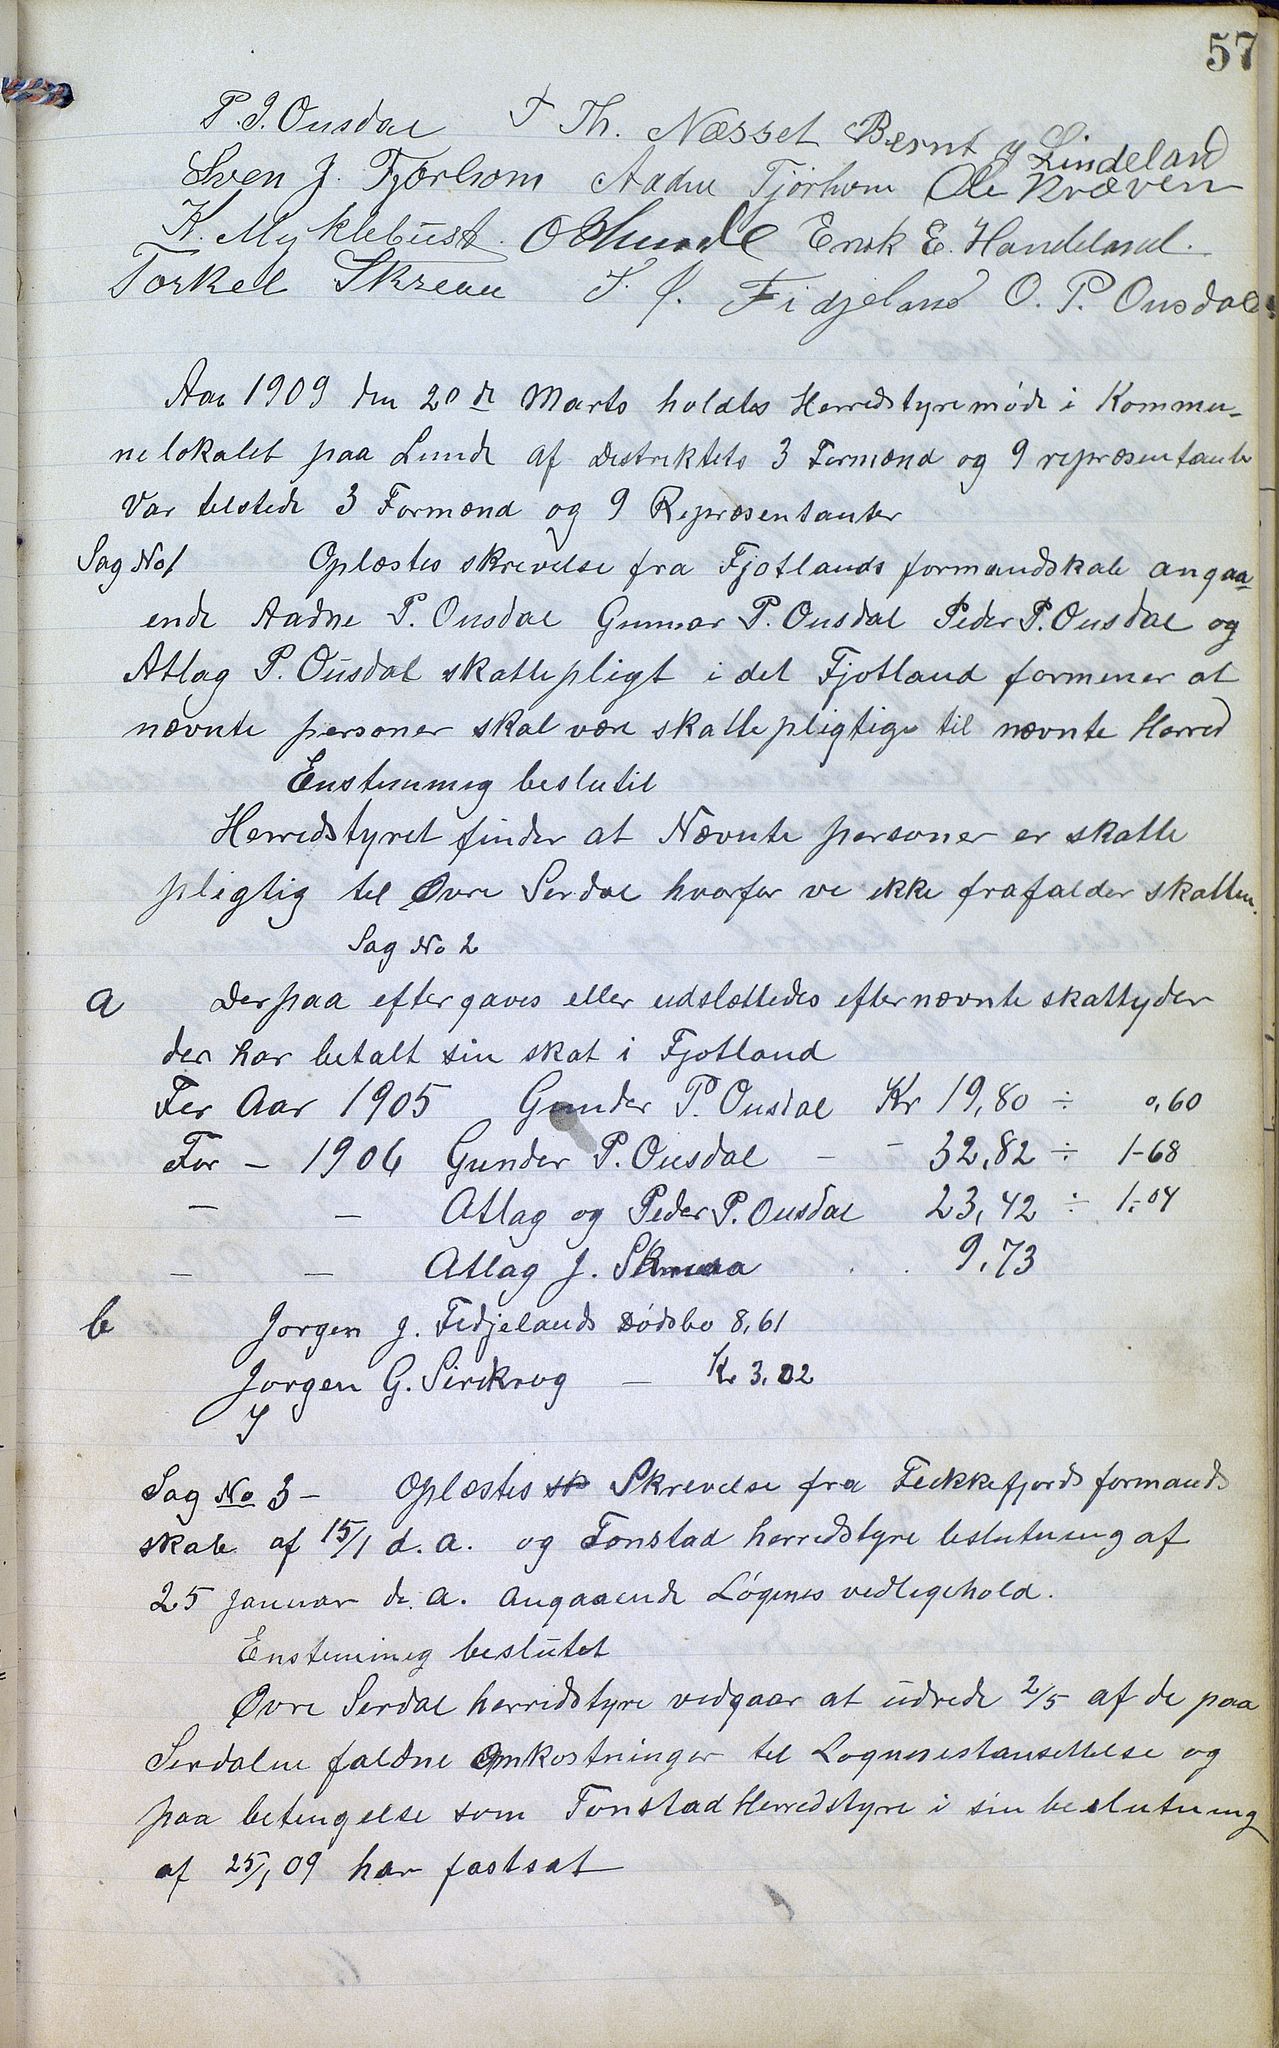 57
P. J. Ousdal T Th. Næsset Bernt J Lindeland
Sven J. Tjørhom Aadne Tjörhom Ole Kvæven
K. Myklebust. O Hunsdl Enok E. Handeland.
Torkel Skreaa T. J. Fidjeland O. P. Ousdal.
Aar 1909 den 20de Marts holdtes Herredstyremøde i Kommu-
nelokalet paa Lunde af Destriktets 3 Formænd og 9 repræsentante
Var telstede 3 Formænd og 9 Repræsentanter
Sag No 1 Oplæstes skrivelse fra Fjotlands formandskab angaa
ende Aadne P. Ousdal Gunnar P. Ousdal Peder P. Ousdal og
Atlag P. Ousdal skattepligt i det Fjotland formener at
nævnte personer skal være skattepligtige til nævnte Herred
Enstemmig beslutit
Herredstyret finder at Nævnte personer er skatte
pligtig tel Øvre Serdal hvorfor vi ikke frafalder skatten.
Sag No 2
a Derpaa eftergaves eller udslettedes efternævnte skattyder
der har betalt sin skat i Fjotland
For Aar 1905 Gunder P. Ousdal Kr 19,80 ÷ 0,60
For - 1906 Gunder P. Ousdal - 32,82 ÷ 1-68
- - Atlag og Peder P. Ousdal 23,42 ÷ 1.04
- - Atlag J. Skreaa . . 9,73
b Jorgen J. Fidjelands Dødsbo 8,61
Jorgen G. Sirekrog - Kr 3,02
J
Sag No 3 - Oplæstes sk Skrivelse fra Fekkefjords formands
skab af 15/1 d. a. og Tonstad herredstyre beslutning af
25 Januar d. a. angaaende Løgnes vedligehold.
Enstemmig beslutet
Øvre Serdal herredstyre vedgaar at udrede 2/5 af de paa
Serdalne faldne Omkostninger tel Lognesistansettelse og
paa betingelse som Tonstad Herredstyre i sin beslutning
af 25/1 09 har fastsat